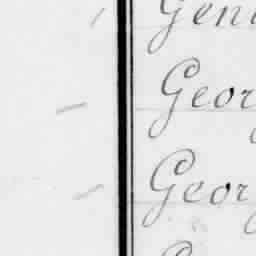 Gen
Geor
Geor